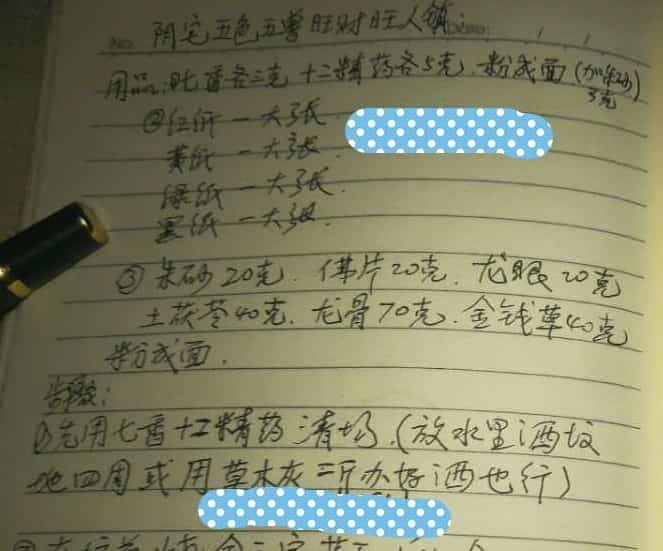 阴宅五色五兽旺财旺人镇:
No.
用品:七香各三克 十二精药各5克.粉成面(加朱砂3克)
②红纸一大张
黄纸一大张.
绿纸一大张.
黑纸一大张.
③朱砂20克.佛片20克.龙眼20克
土茯苓40克.龙骨70克.金钱草40克
粉成面.
步骤:
①先用七香十二精药清场.(放水里洒坟
地四周或用草木灰三斤办好洒也行)